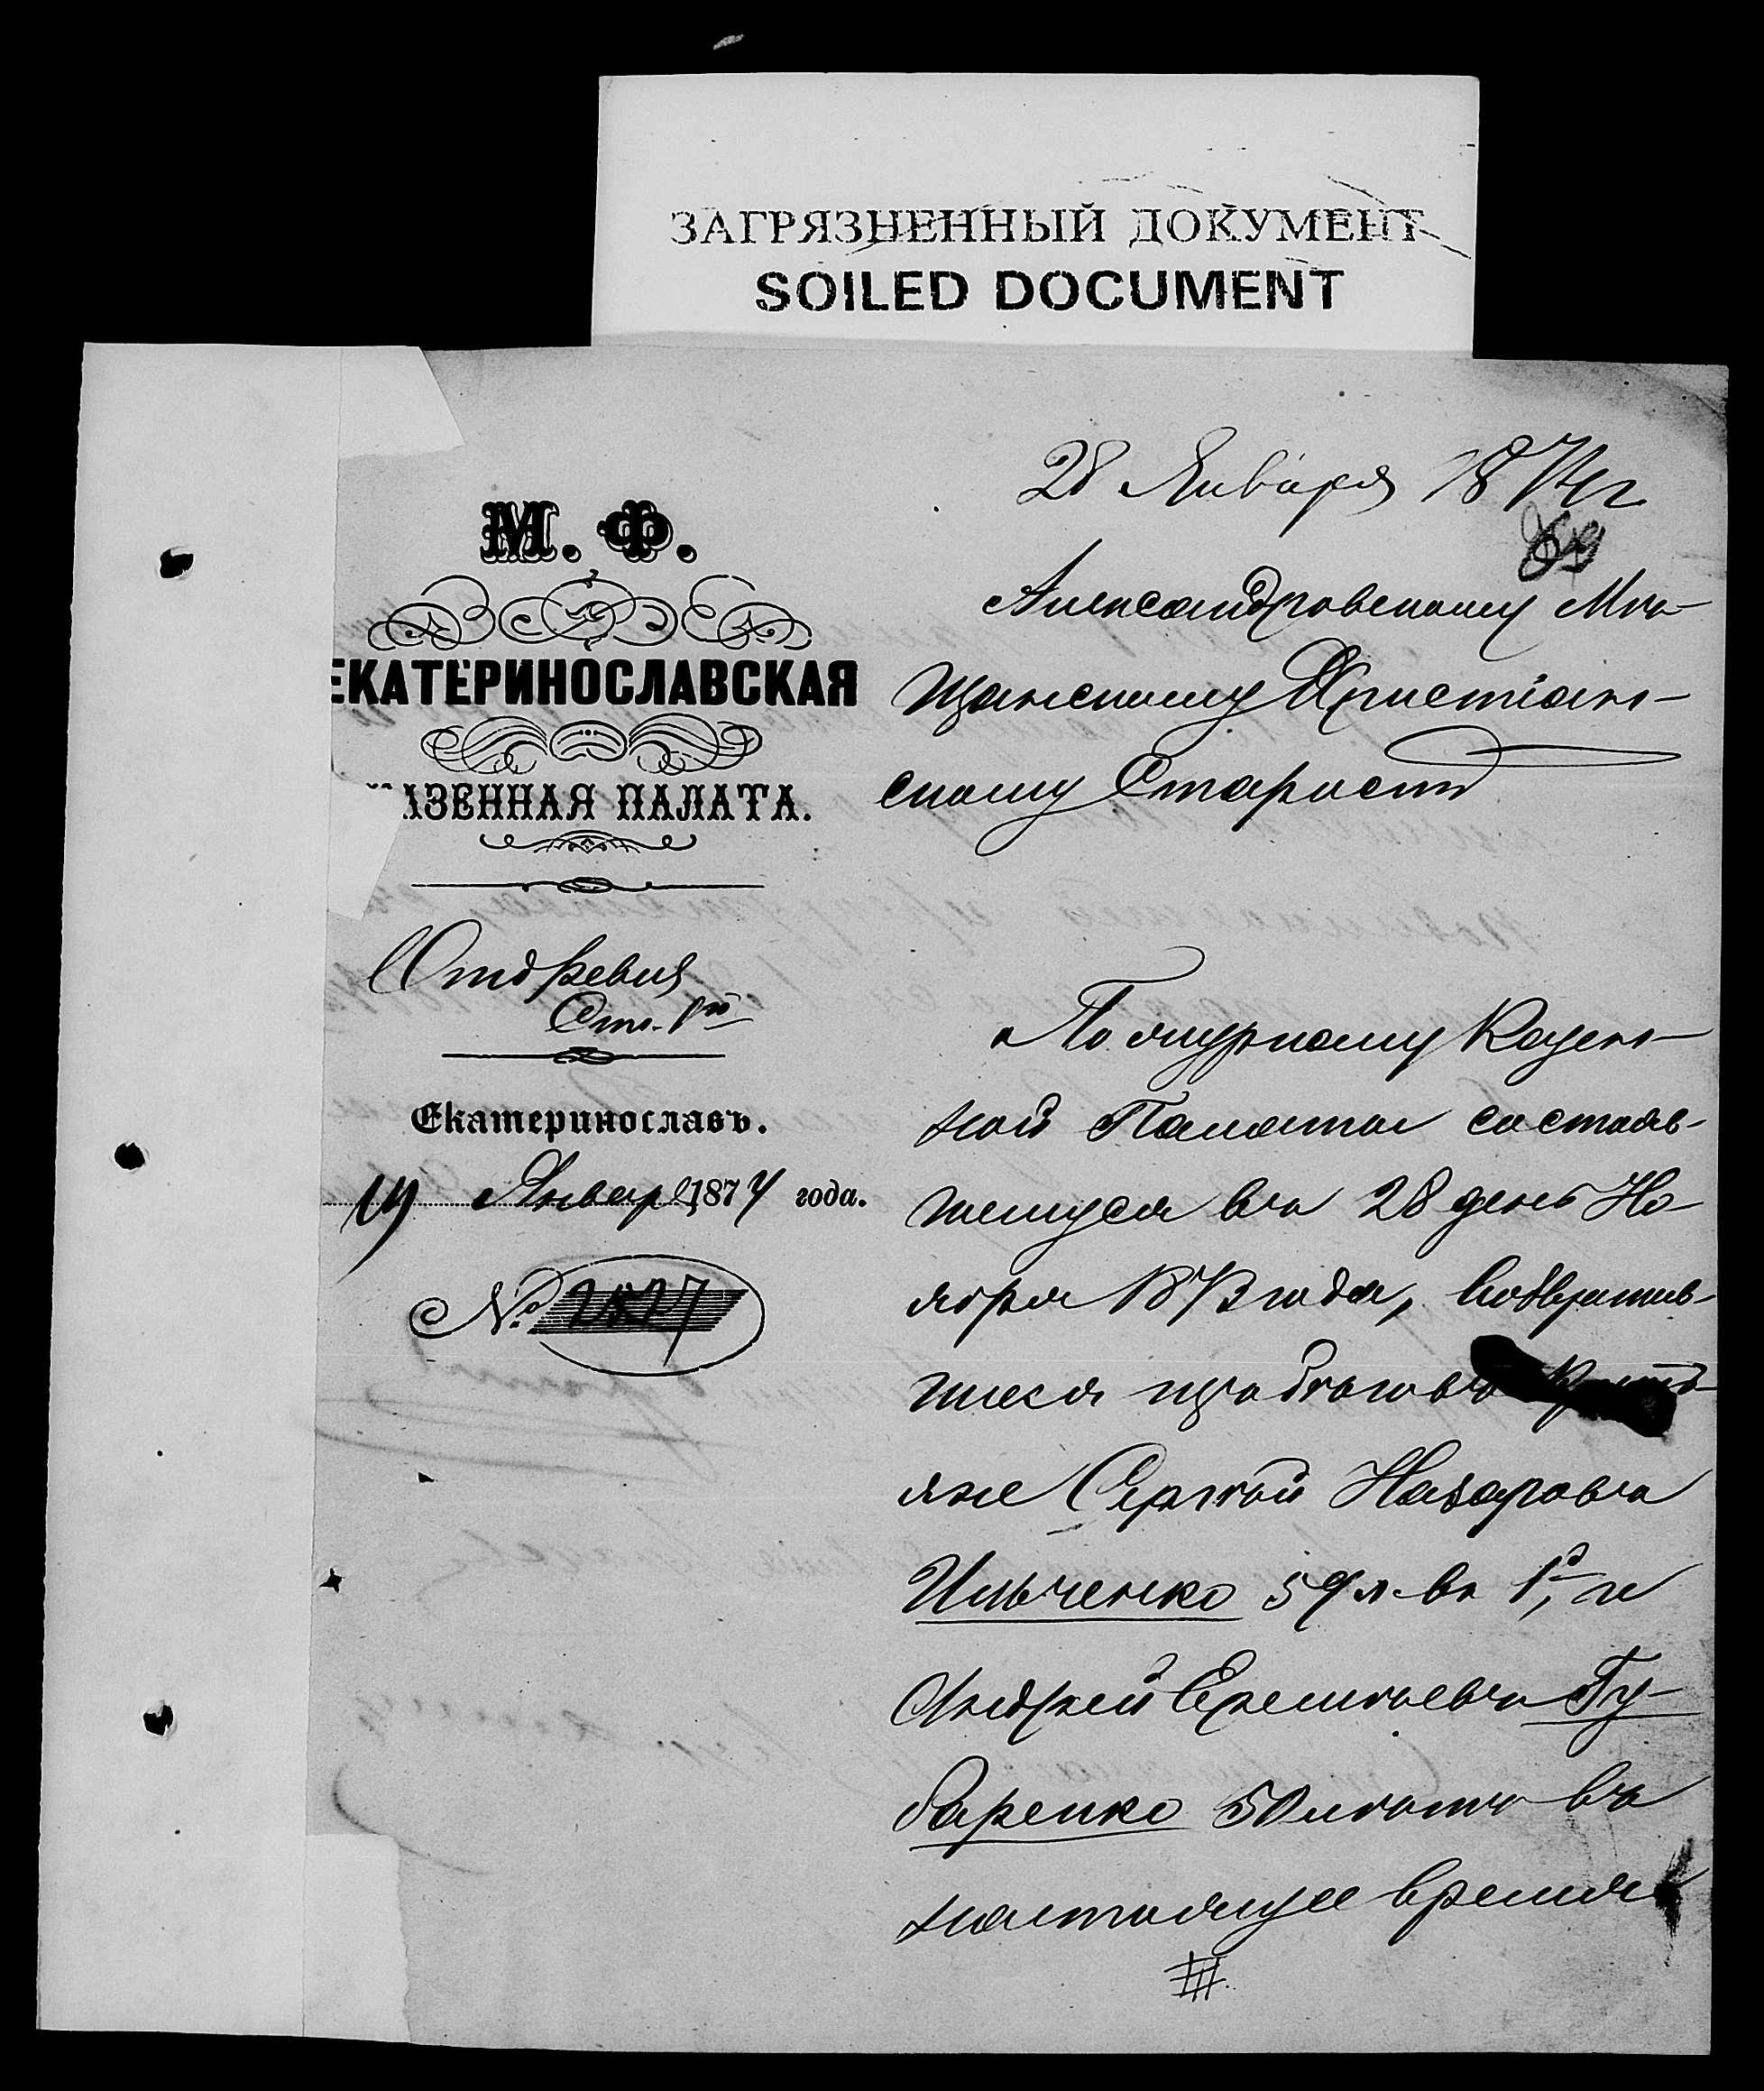 ЗАГРЯЗНЕННЫЙ ДОКУМЕНТ
SOILED DOCUMENT
М. Ф.
ЕКАТЕРИНОСЛАВСКАЯ
АЗЕННАЯ ПАЛАТА.
Отд Ревиз
Ст. 1й
Екатеринославъ.
19 Января 1874 года.
№ 2827
28 Января 1874 г
Александровскому Мѣ-
щанскому Христіан-
скому Старостѣ
По журналу Казен-
ной Палаты состояв-
шемуся въ 28 день Но-
ября 1873 года, возвратив-
шіеся изъ бѣговъ
яне Сергѣй Назаровъ
Ильченко 59 л. въ 1й, и
Андрей Еремѣевъ Гу-
баренко 50 лѣтъ въ
настоящее время